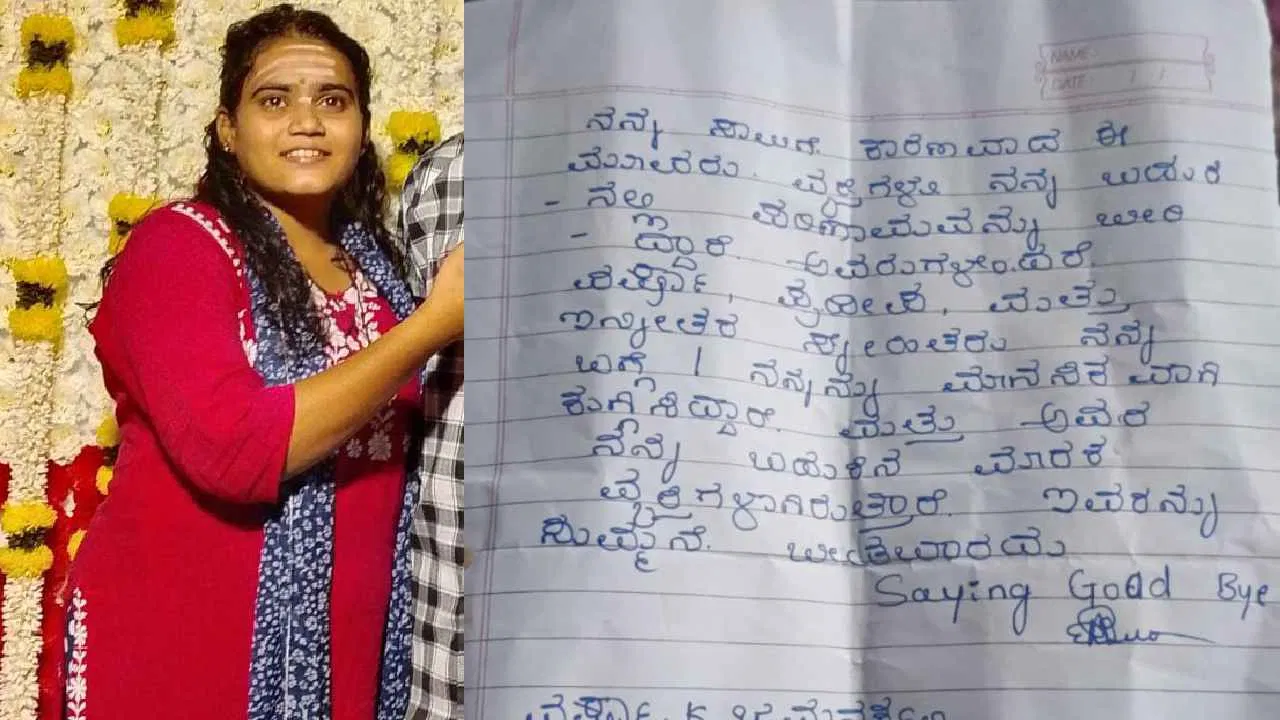 NAME:
DATE: / /
ನನ್ನ ಸಾವಿಗೆ ಕಾರಣವಾದ ಈ
ಮೂವರು. ವ್ಯಕ್ತಿಗಳು ನನ್ನ ಬದುಕಿ
- ನಲ್ಲಿ ಪರಿಣಾಮವನ್ನು ಬೀರಿ
- ದ್ದಾರೆ. ಅವರುಗಳೆಂದರೆ
ಮತ್ತು
ಇನ್ನೀತರ ಸ್ನೇಹಿತರು ನನ್ನ
ಬಗ್ಗೆ / ನನ್ನನ್ನು ಮಾನಸಿಕವಾಗಿ
ಕುಗ್ಗಿಸಿದ್ದಾರೆ. ಮತ್ತು ಅವರ
ನನ್ನ ಬದುಕಿನ ಮಾರಕ
ವ್ಯಕ್ತಿಗಳಾಗಿರುತ್ತಾರೆ. ಇವರನ್ನು
ಸುಮ್ಮನೆ. ಬೀಡಬಾರದು
Saying Good Bye